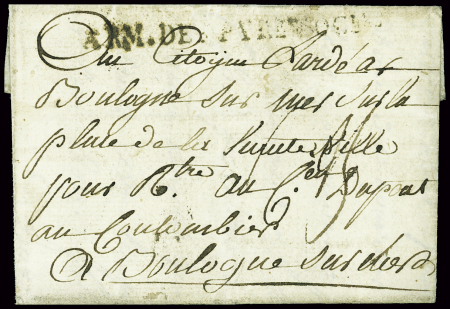 ARM. DES PYREN OCC
Au Citoyen Lardé a
Boulogne sur mer sur la
place de la haute Ville
pour R.tre au C.en Dupont
au Coulombier
A Boulogne sur mer